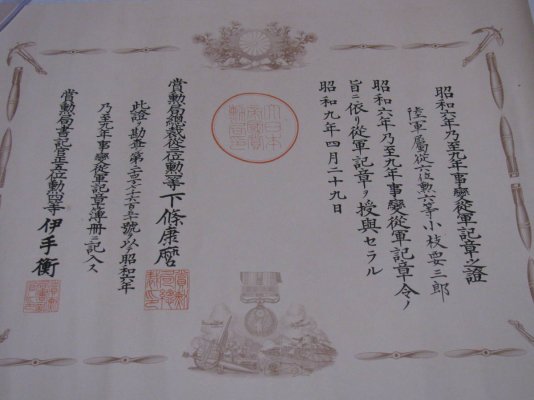 昭和六年乃至九年事變從軍記章之證
陸軍屬從六位勲六等小枝要三郎
昭和六年乃至九年事變從軍記章令ノ
旨ニ依リ從軍記章ヲ授與セラル
昭和九年四月二十九日
大日本
帝國賞
勲局印
賞勲局總裁從三位勲一等下條康麿
此證ヲ勘査シ第
號ヲ以テ昭和六年
乃至九年事變從軍記章簿冊ニ記入ス
賞勲局書記官正五位勲四等伊手衡